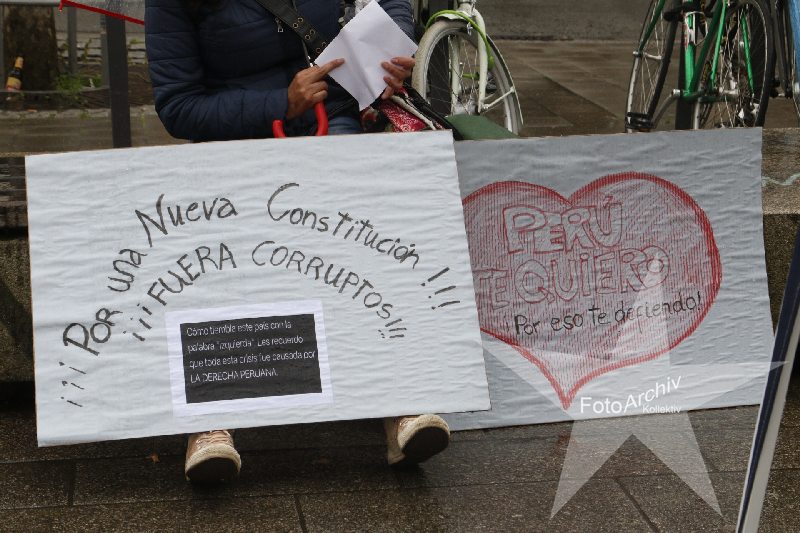 ¡¡¡Por una Nueva Constitución!!!
¡¡¡FUERA CORRUPTOS!!!
Como tiembla este país con la
palabra "izquierda". Les recuerdo
que toda esta crisis fue causada por
LA DERECHA PERUANA.
PERÚ
TE QUIERO
¡Por eso te defiendo!
FotoArchiv
Kollektiv